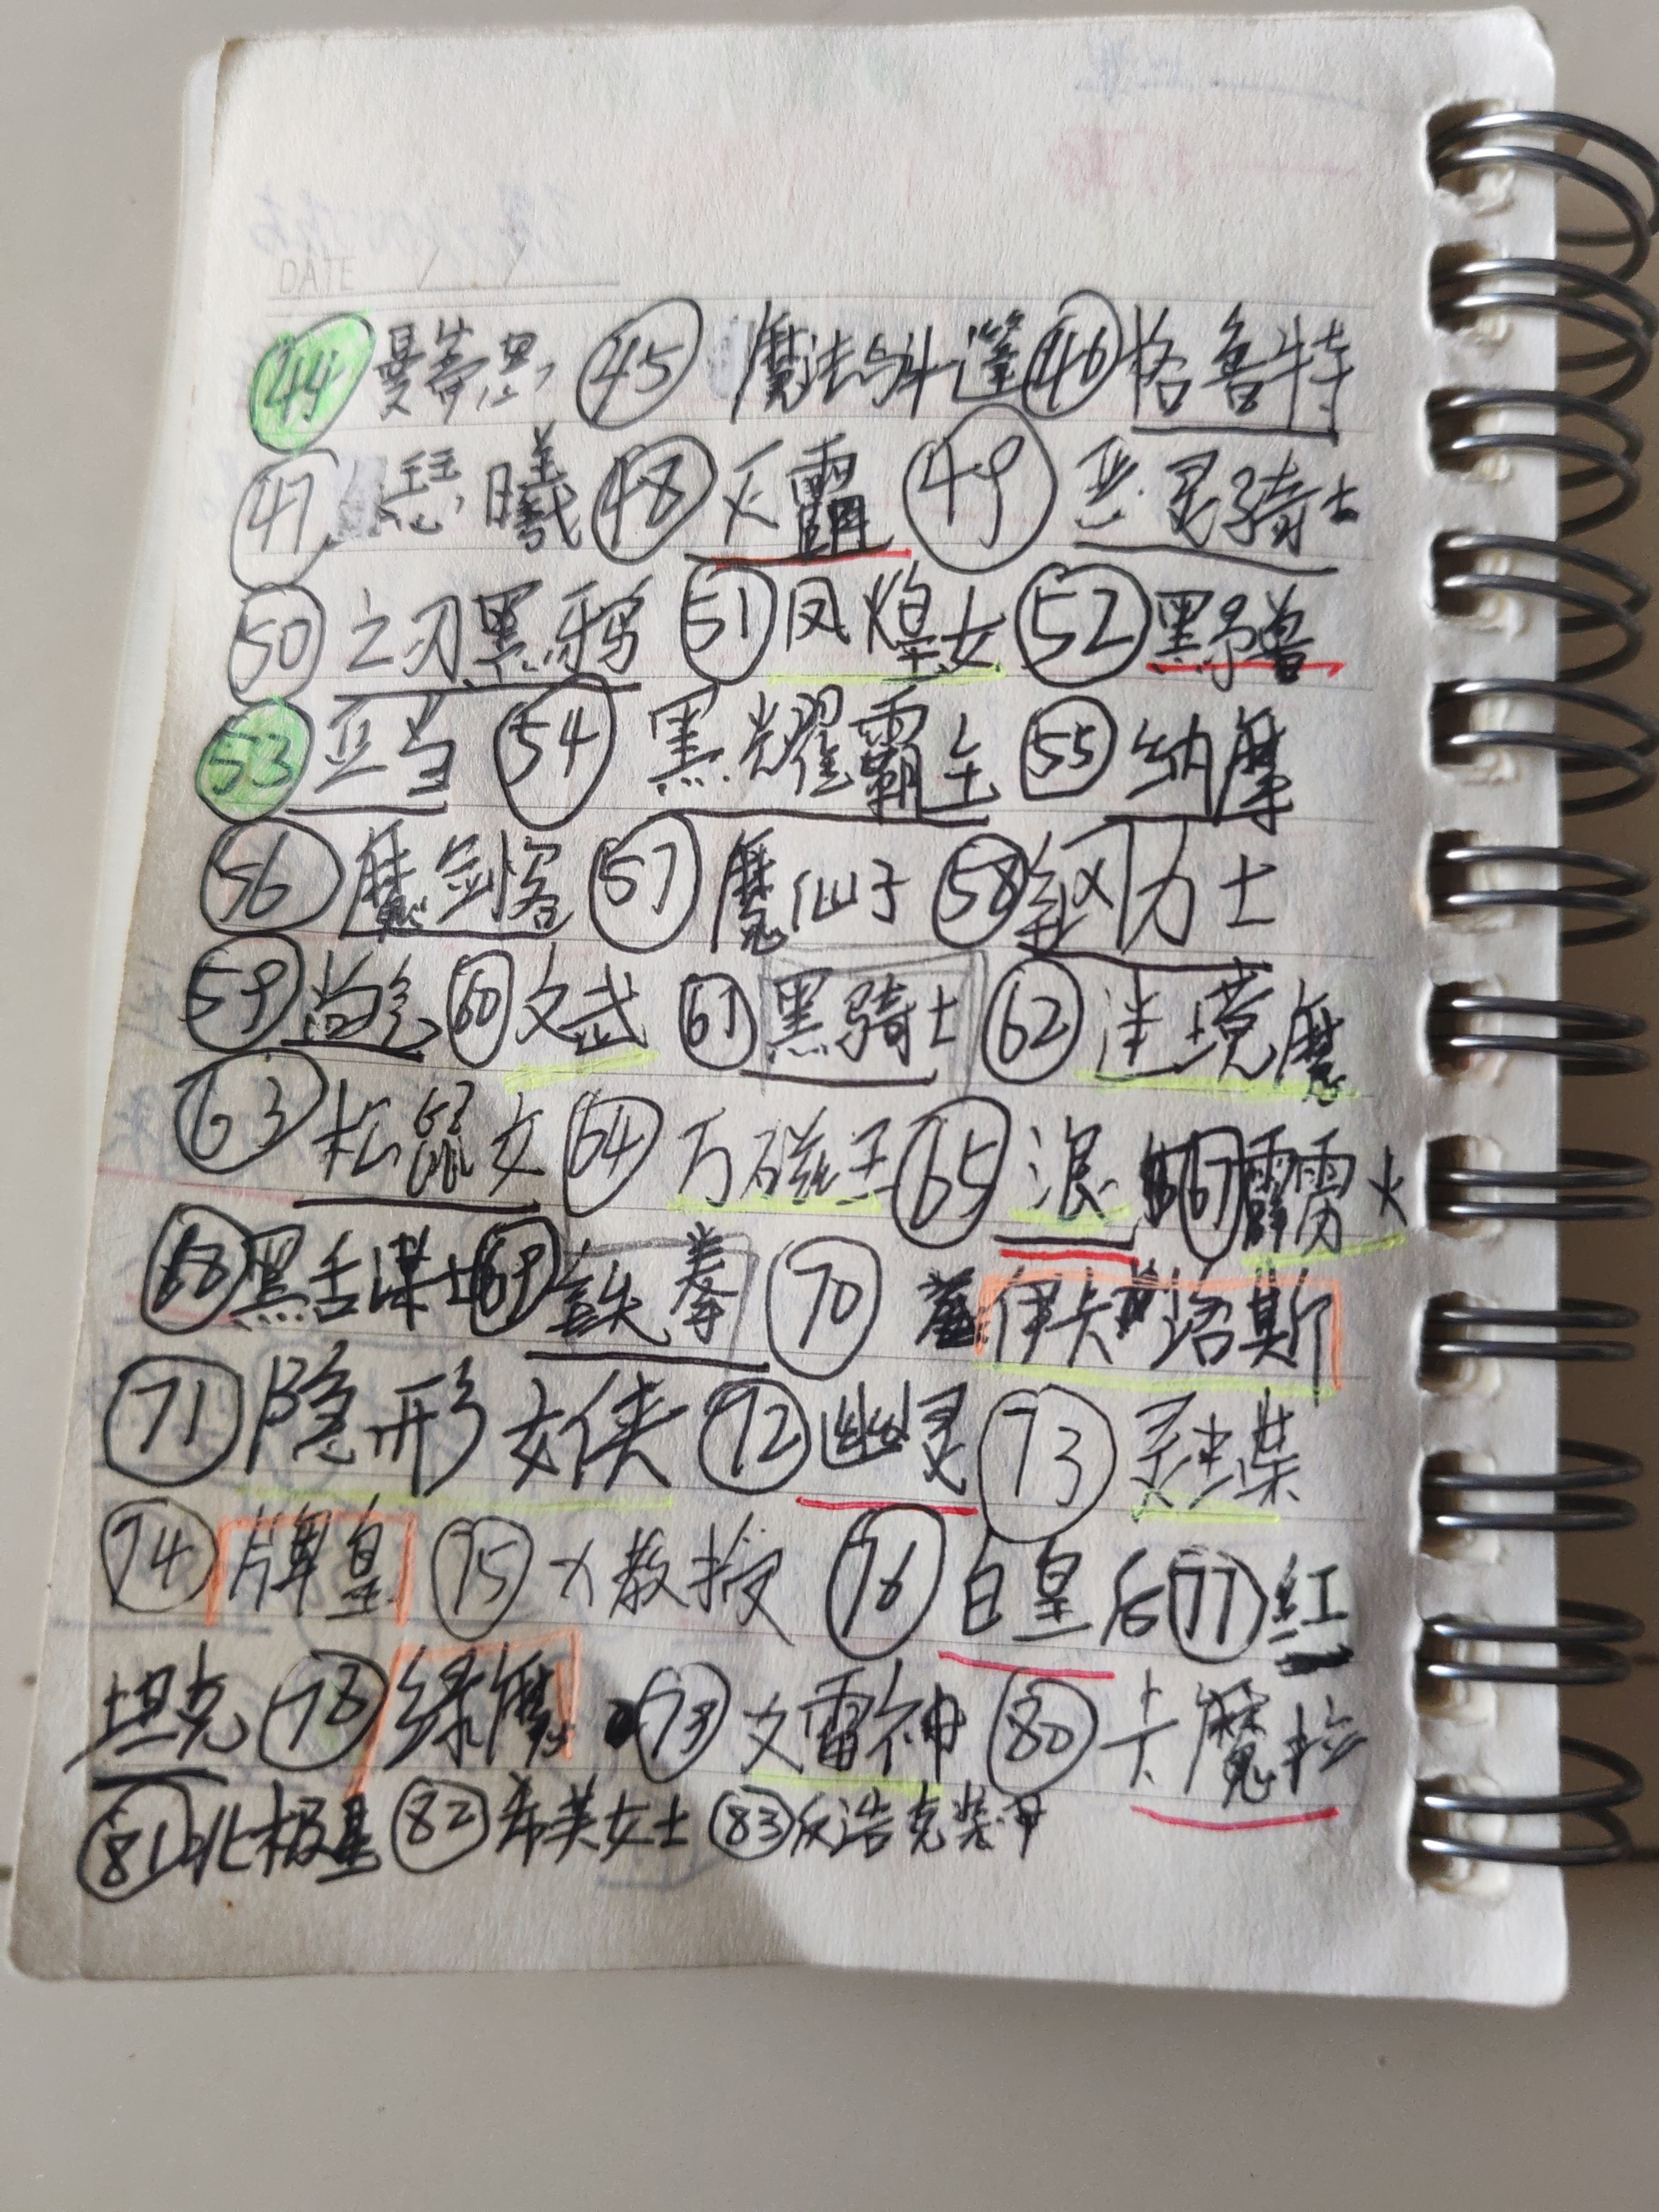 DATE / /
㊹曼蒂思 ㊺魔法与斗篷 ㊻格鲁特
㊼瑟曦 ㊽灭霸 ㊾恶灵骑士
㊿之刃黑鸦 51凤煌女 52黑豹
53亚当 54黑耀霸主 55纳摩
56魔剑客 57魔仙子 58钢力士
59尚气 60文武 61黑骑士 62迷境魔
63松鼠女 64万磁王 65浪 67霹雳火
68黑舌谋士 69铁拳 70伊卡洛斯
71隐形女侠 72幽灵 73灵蝶
74牌皇 75X教授 76白皇后 77红
坦克 78绿魔 79女雷神 80卡魔拉
81北极星 82希美女士 83反浩克装甲